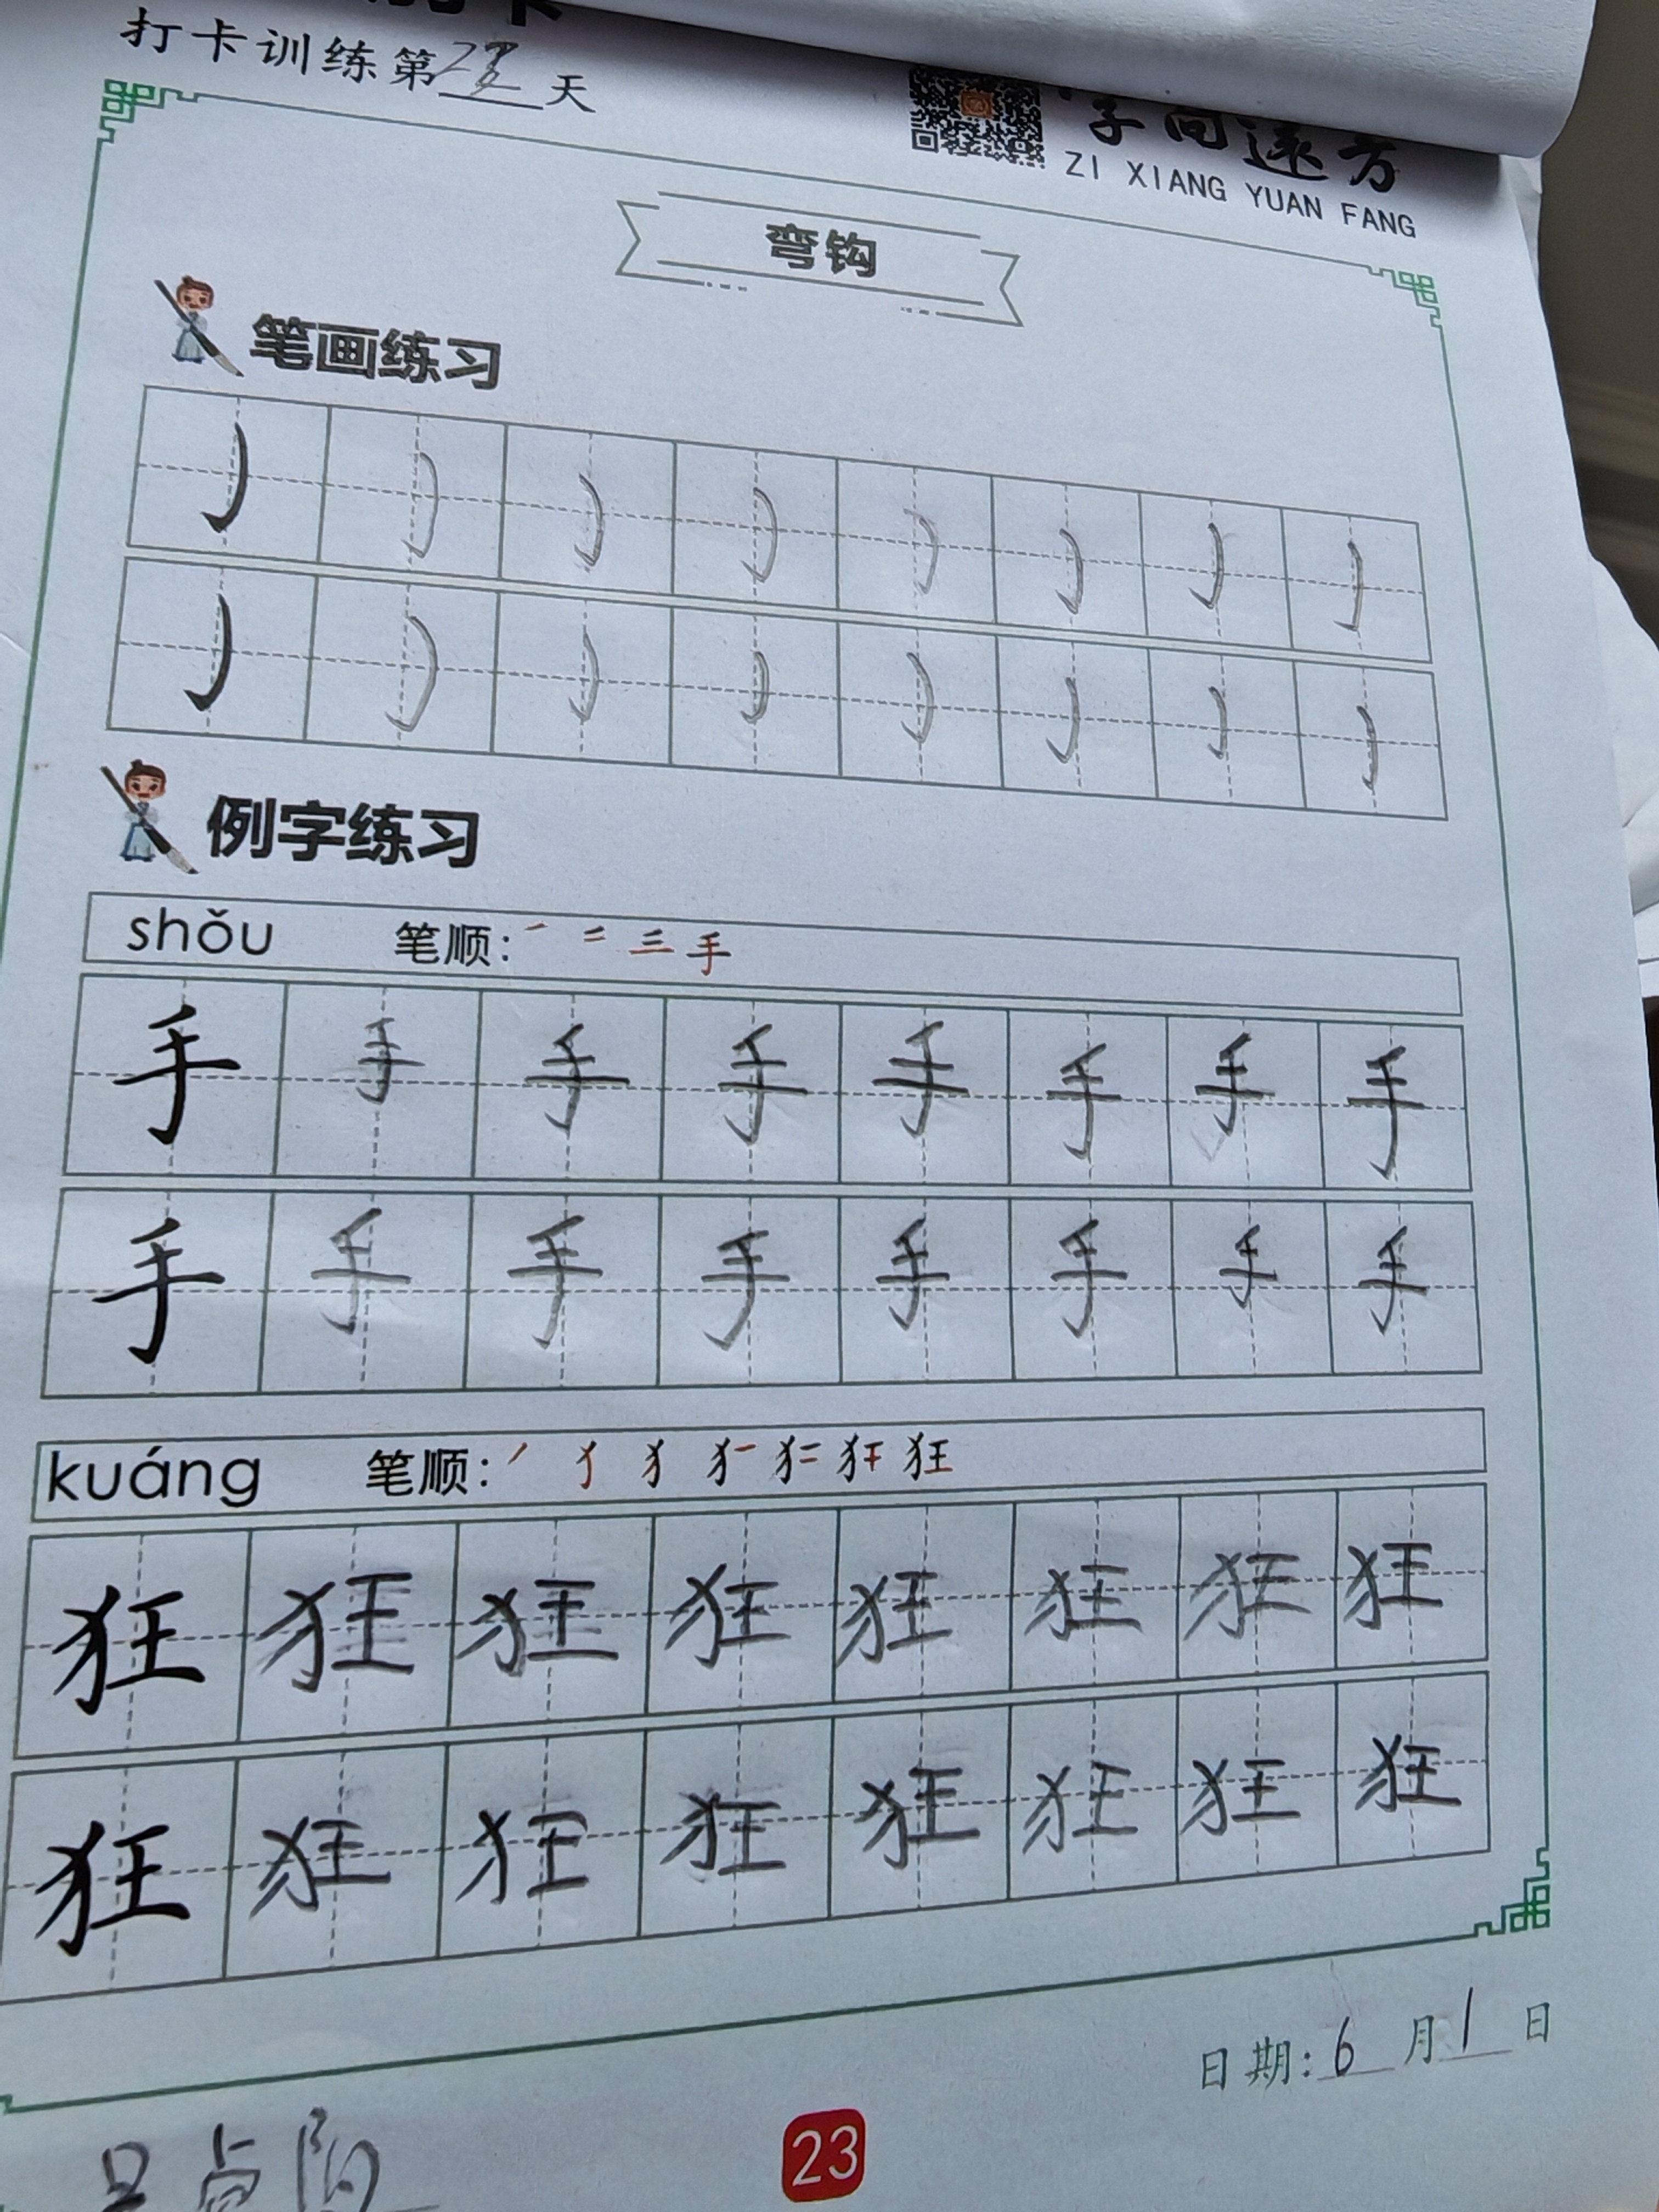 打卡训练第 天
字向远方
ZI XIANG YUAN FANG
弯钩
笔画练习
例字练习
shǒu 笔顺: 一 二 三 手
手 手 手 手 手 手 手 手
手 手 手 手 手 手 手 手
kuáng 笔顺: 丿 犭 犭 狂
狂 狂 狂 狂 狂 狂 狂 狂
狂 狂 狂 狂 狂 狂 狂 狂
日期: 6 月 1 日
23